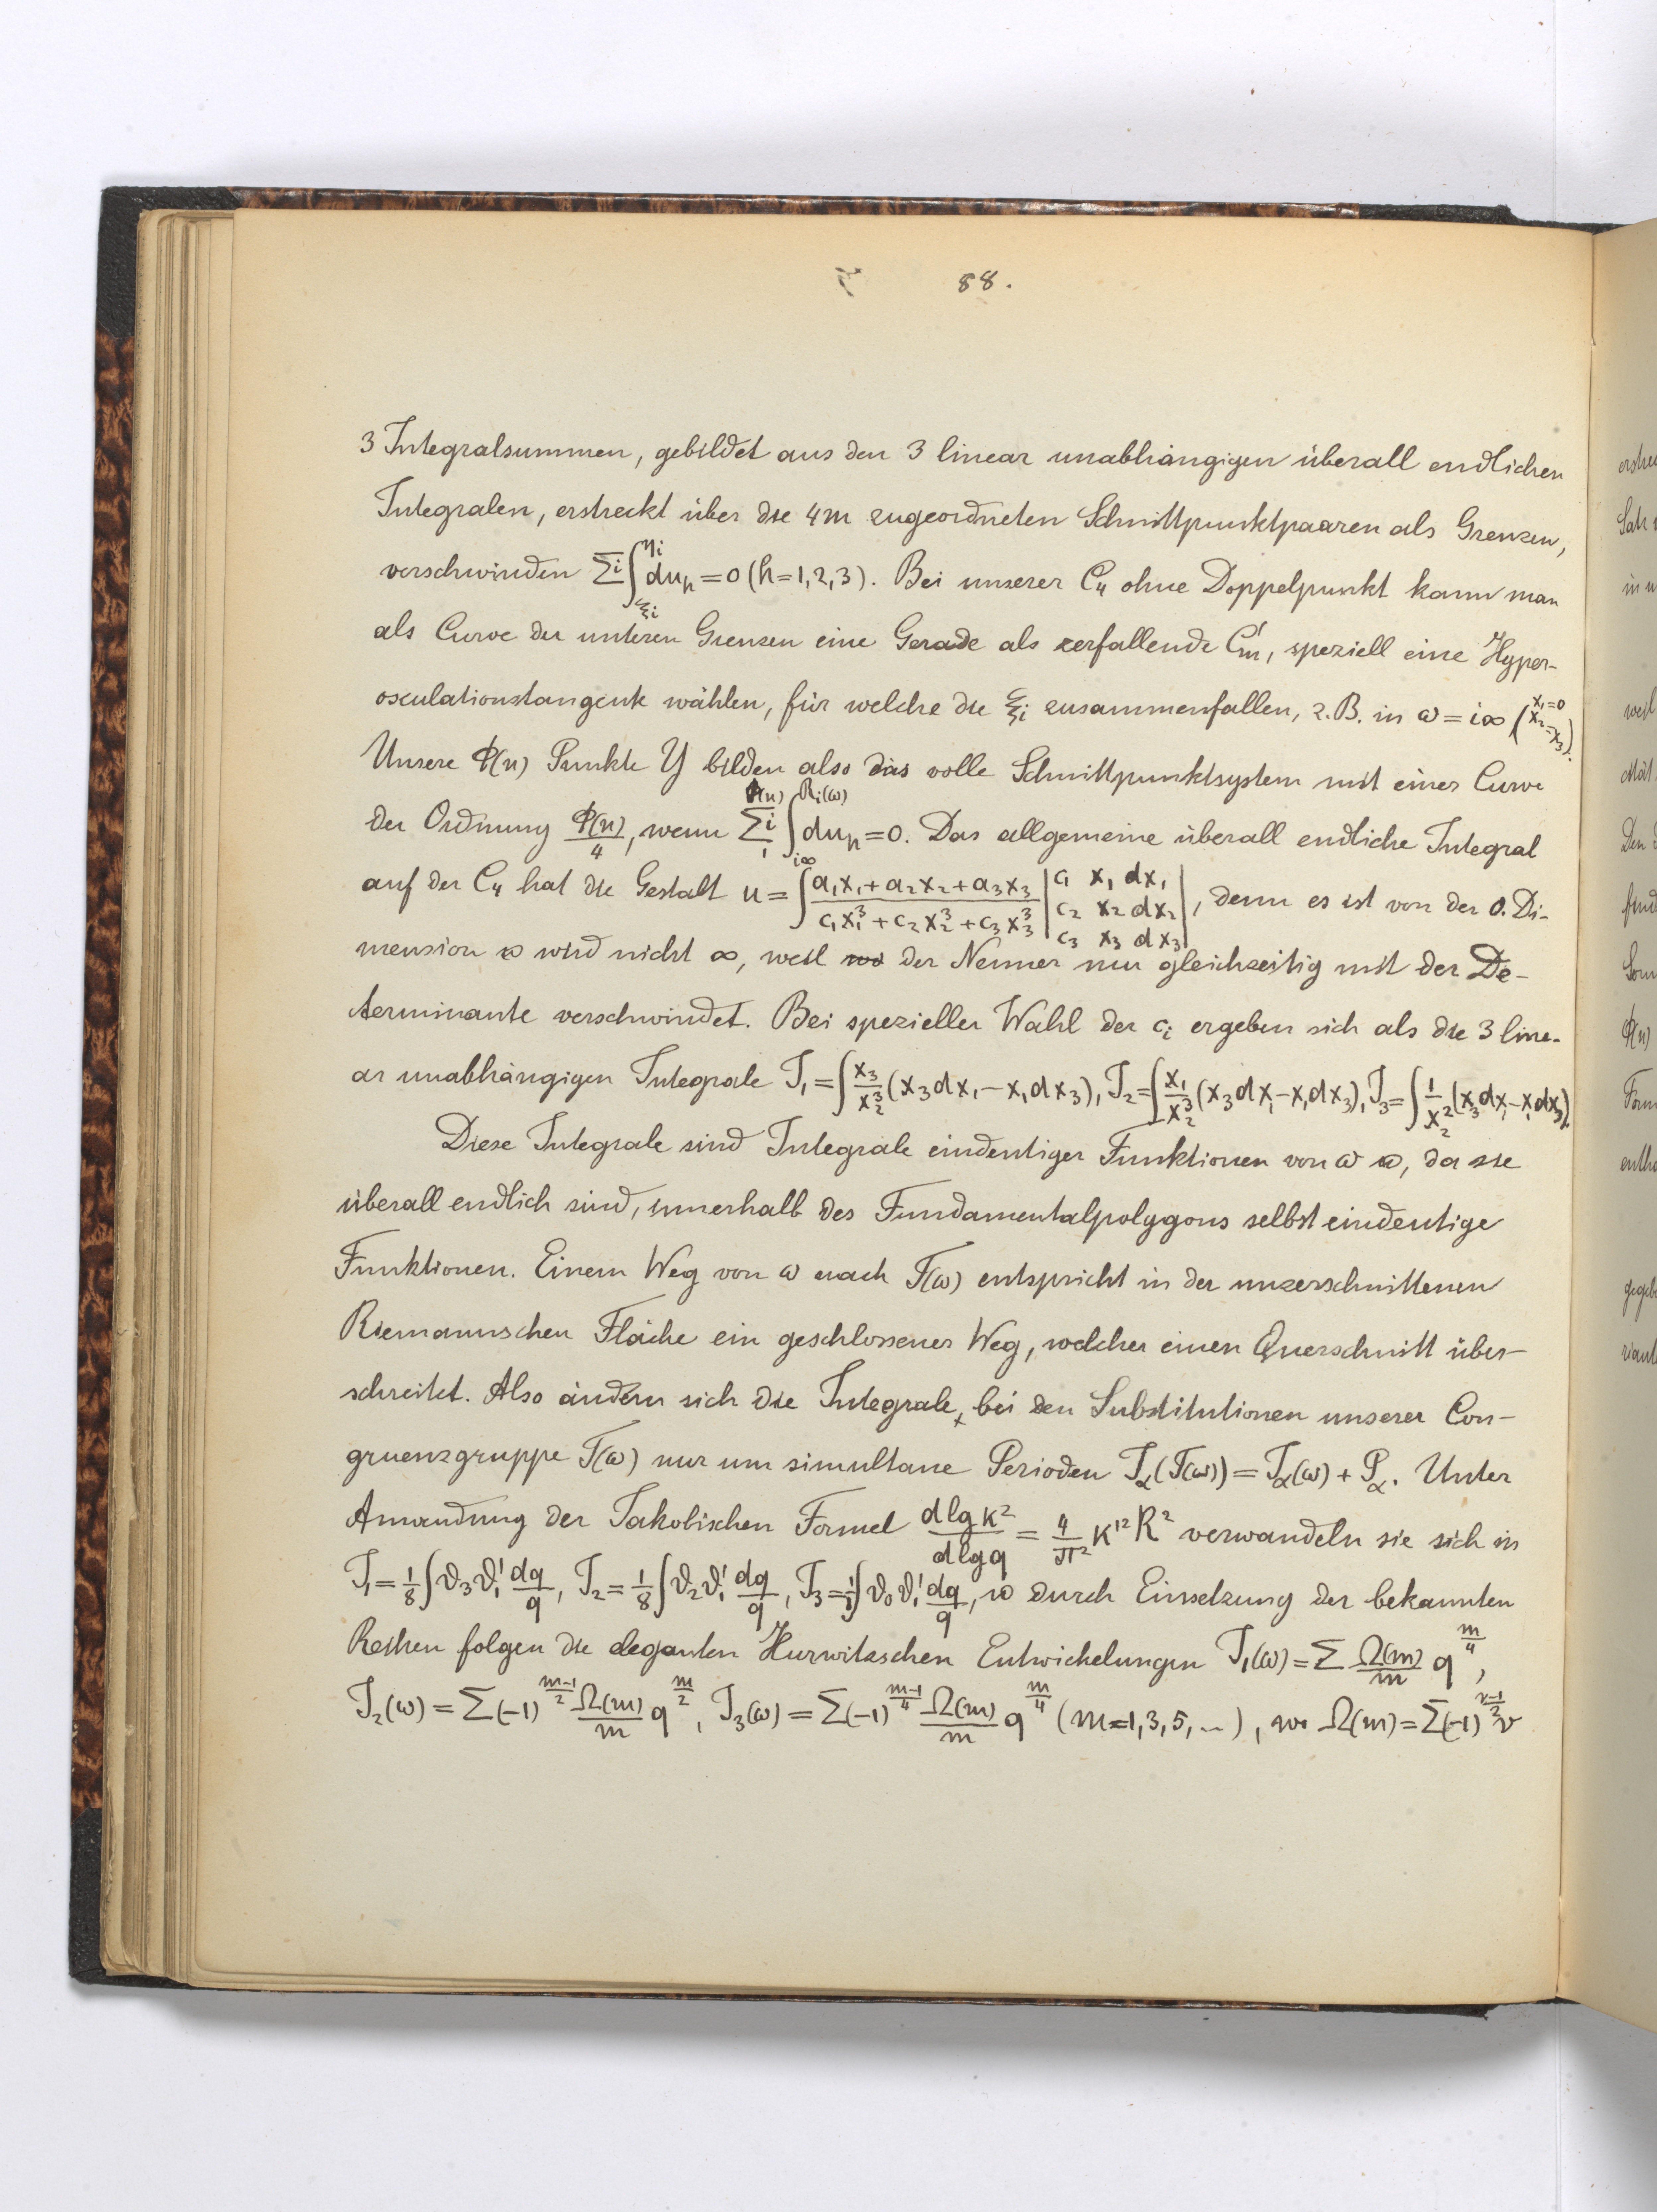 88.
3 Integralsummen, gebildet aus den 3 linear unabhängigen überall endlichen
Integralen, erstreckt über die 4m zugeordneten Schnittpunktpaaren als Grenzen,
verschwinden Σi ∫_{ξi}^{ηi} du_h = 0 (h=1,2,3). Bei unserer C₄ ohne Doppelpunkt kann man
als Curve der unteren Grenzen eine Gerade als zerfallende C'm, speziell eine Hyper-
osculationstangente wählen, für welche die ξi zusammenfallen, z.B. in ω = i∞ (x₁=0 x₂=x₃).
Unsere Φ(n) Punkte Y bilden also das volle Schnittpunktsystem mit einer Curve
der Ordnung Φ(n)/4, wenn Σi_1^{Φ(n)} ∫_{i∞}^{Ri(ω)} du_h = 0. Das allgemeine überall endliche Integral
auf der C₄ hat die Gestalt u = ∫ (a₁x₁+a₂x₂+a₃x₃)/(c₁x₁³+c₂x₂³+c₃x₃³) |c₁ x₁ dx₁ c₂ x₂ dx₂ c₃ x₃ dx₃|, denn es ist von der 0. Di-
mension & wird nicht ∞, weil der Nenner nur gleichzeitig mit der De-
terminante verschwindet. Bei spezieller Wahl der ci ergeben sich als die 3 line-
ar unabhängigen Integrale J₁ = ∫ x₃/x₂³ (x₃dx₁-x₁dx₃), J₂ = ∫ x₁/x₂³ (x₃dx₁-x₁dx₃), J₃ = ∫ 1/x₂² (x₃dx₁-x₁dx₃).
Diese Integrale sind Integrale eindeutiger Funktionen von ω &, da sie
überall endlich sind, innerhalb des Fundamentalpolygons selbst eindeutige
Funktionen. Einem Weg von ω nach T(ω) entspricht in der unzerschnittenen
Riemannschen Fläche ein geschlossener Weg, welcher einen Querschnitt über-
schreitet. Also ändern sich die Integrale, bei den Substitutionen unserer Con-
gruenzgruppe T(ω) nur um simultane Perioden Jα(T(ω)) = Jα(ω) + Pα. Unter
Anwendung der Jakobischen Formel dlgκ²/dlgq = 4/π² κ'² K² verwandeln sie sich in
J₁ = 1/8 ∫ϑ₃ϑ₁' dq/q, J₂ = 1/8 ∫ϑ₂ϑ₁' dq/q, J₃ = 1/8 ∫ϑ₀ϑ₁' dq/q, & durch Einsetzung der bekannten
Reihen folgen die eleganten Hurwitzschen Entwickelungen J₁(ω) = Σ Ω(m)/m q^{m/4},
J₂(ω) = Σ(-1)^{(m-1)/2} Ω(m)/m q^{m/2}, J₃(ω) = Σ(-1)^{(m-1)/4} Ω(m)/m q^{m/4} (m=1,3,5,...), wo Ω(m) = Σ(-1)^{(ν-1)/2} ν